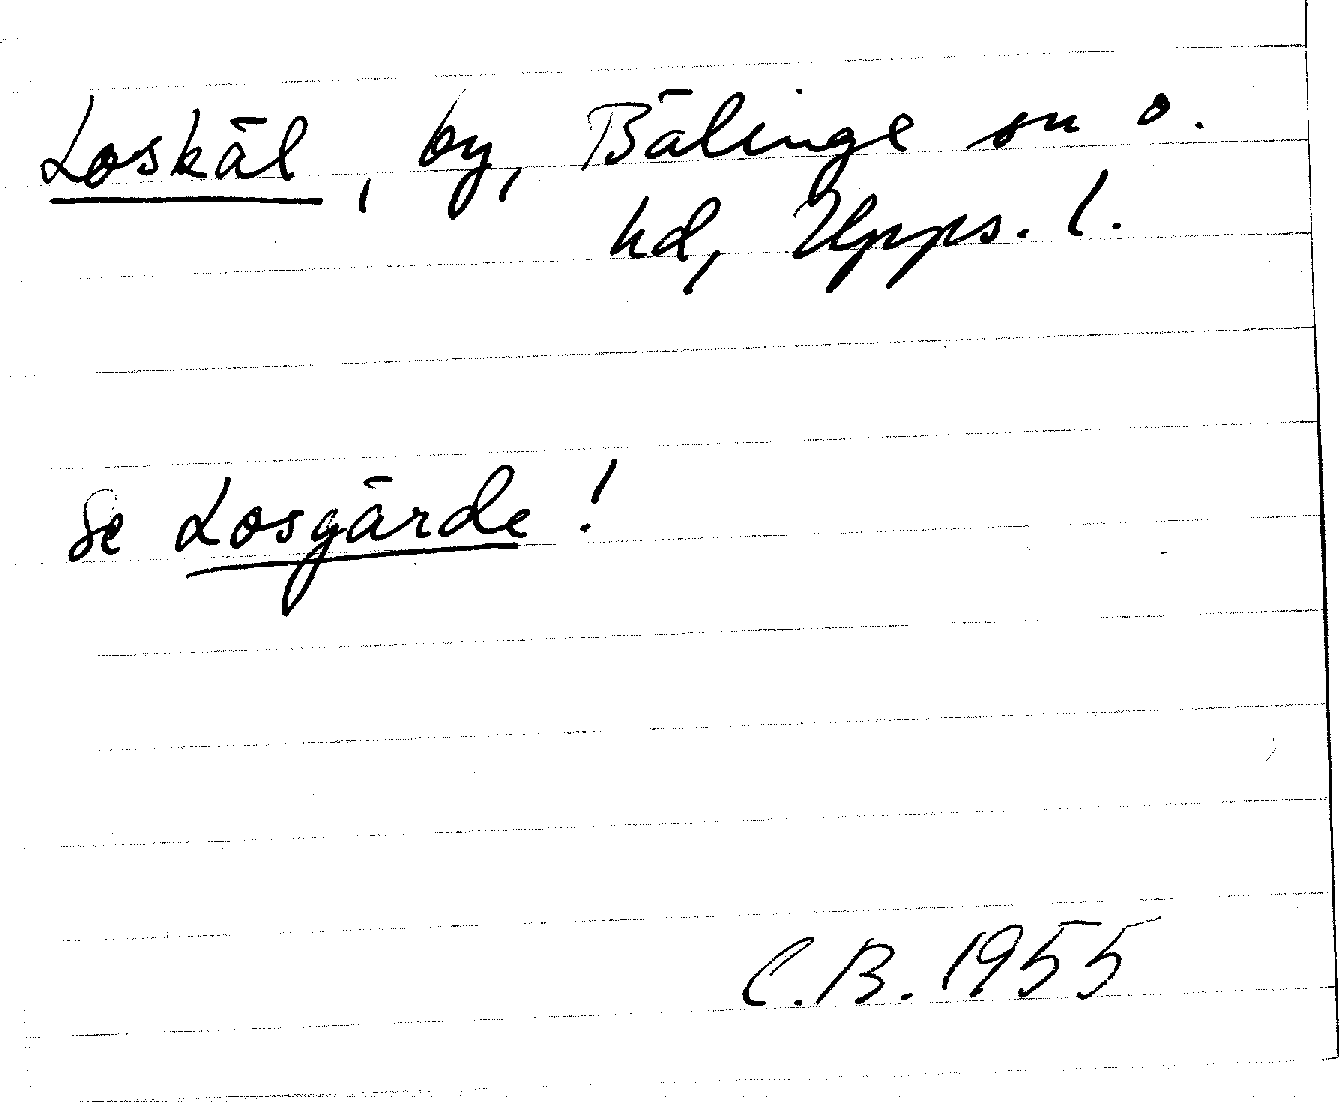 Loskäl, by, Bälinge sn o.
hd, Upps. l.
Se Losgärde!
C.B. 1955